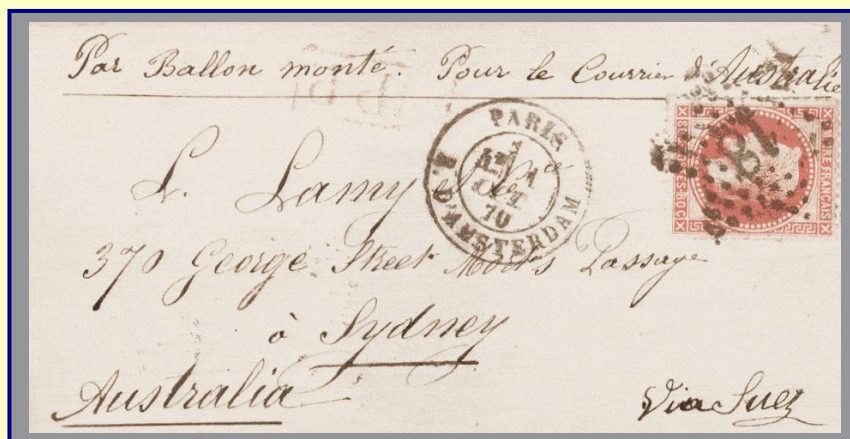 Par Ballon monté. Pour le Courrier d'Australie
P.D.
PARIS
1
OCT
70
R. D'AMSTERDAM
18
FRANÇAIS
L. Lamy et Cie
370 George Street Moore's Passage
à Sydney
Australia
Via Suez